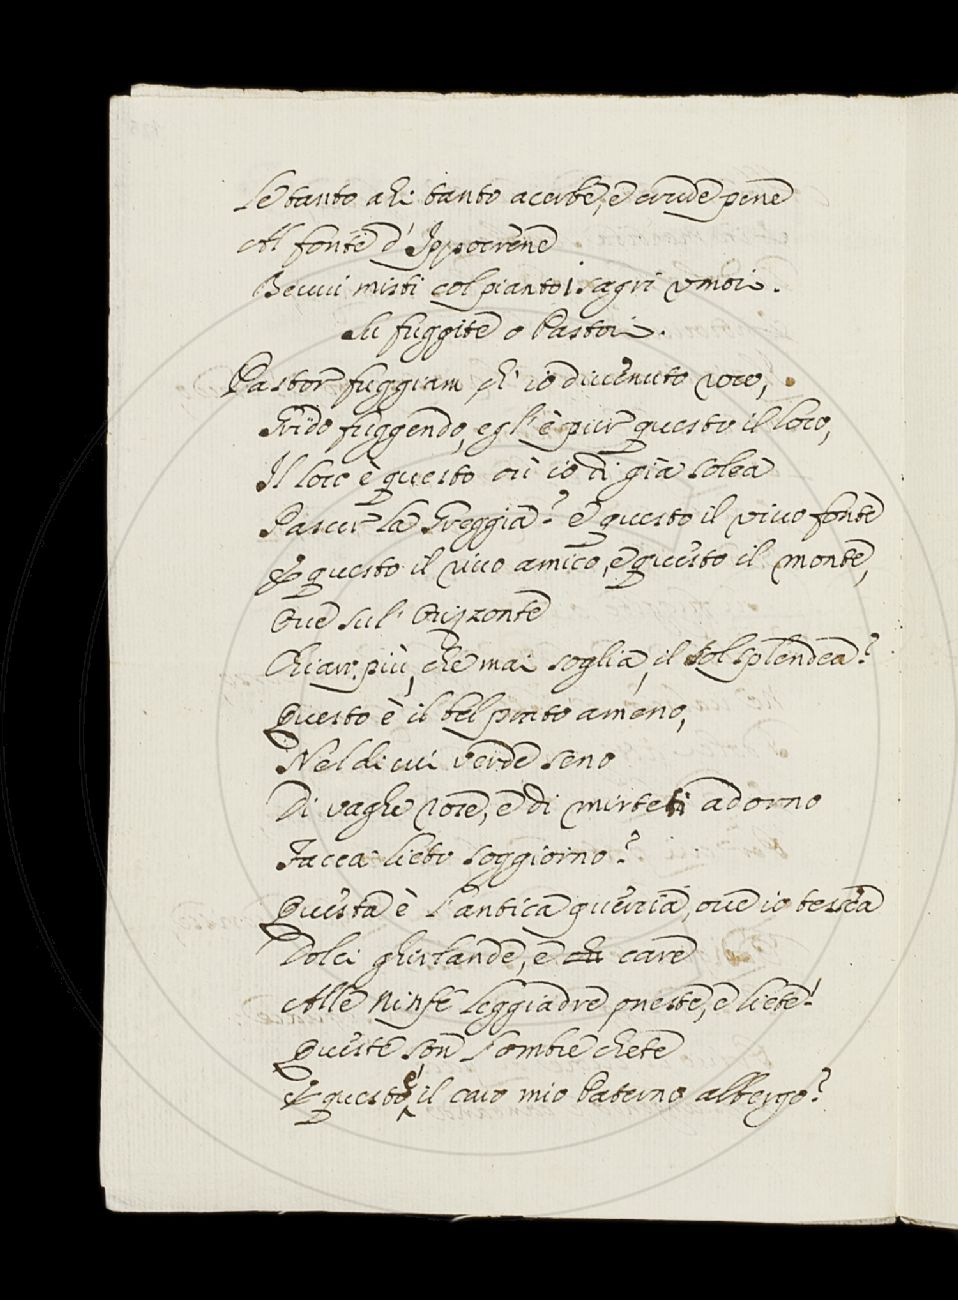 Se tanto ahi tanto acerbe, e crude pene
Al fonte d' Ippocrene
Bevvi misti col pianto i sagri umori.
Su fuggite o Pastori.
Pastor fuggiam ch' io divenuto roco,
Grido fuggendo, egl' è pur questo il loco,
Il loco è questo ov' io di già solea
Pascer la Greggia? e questo il vivo fonte
E questo il vivo amico, e questo il monte,
Ove sul' Orizzonte
Chiar più, che mai soglia, il Sol splendea?
Questo è il bel prato ameno,
Nel di cui verde seno
Di vaghe rose, e di mirteti adorno
Facea lieto soggiorno?
Questa è l'antica quercia, ove io tessea
Dolci ghirlande, e care
Alle Ninfe leggiadre oneste, e liete!
Queste son l'ombre chete
E questo è il caro mio paterno albergo?